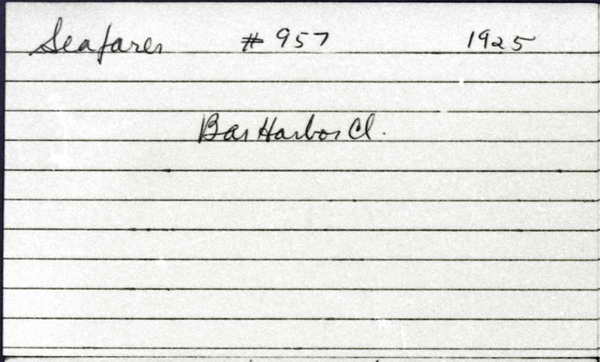 Seafarer #957 1925
Bar Harbor Cl.